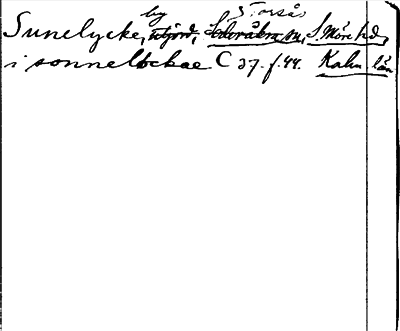 by Torsås
Sunelycke, utjord, Söderåkra sn, S. Möre hd,
i sonneløckae C 27.f.44. Kalm. län